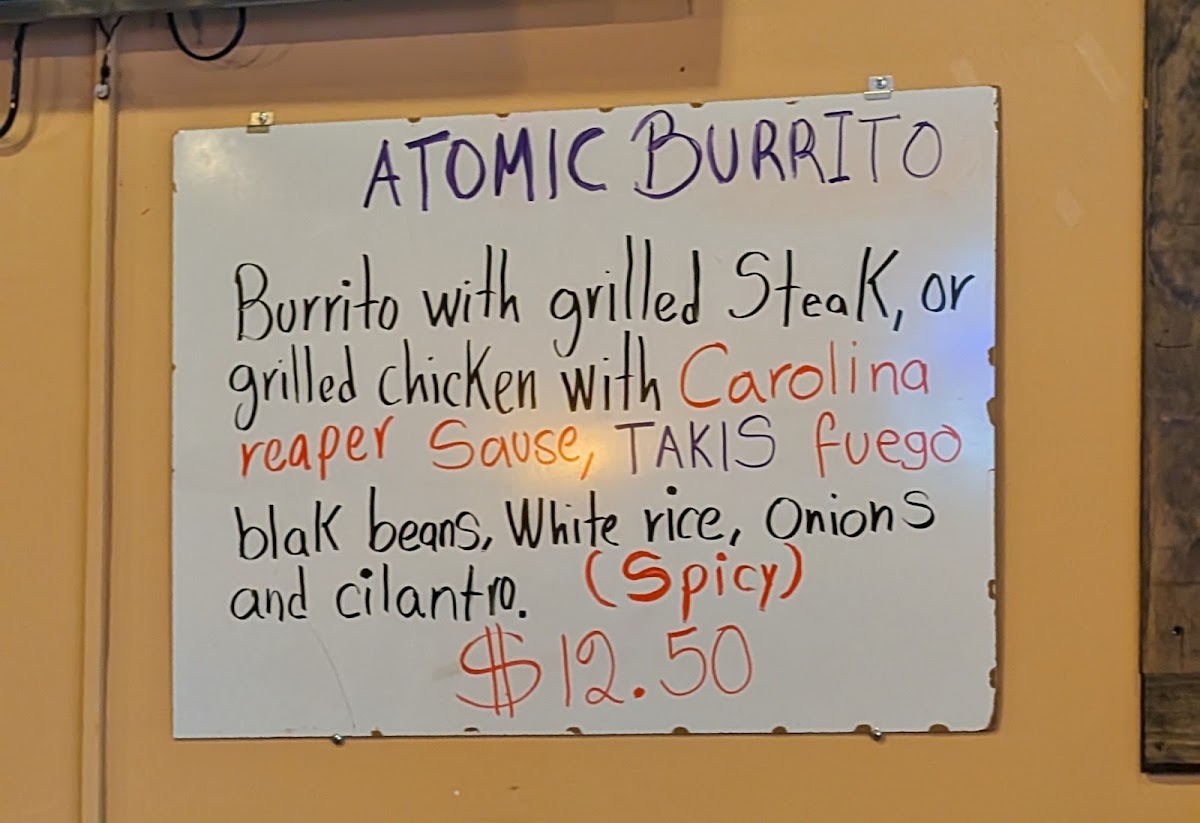 ATOMIC BURRITO
Burrito with grilled Steak, or
grilled chicken with Carolina
reaper Sause, TAKIS fuego
blak beans, White rice, Onions
and cilantro. (Spicy)
$12.50